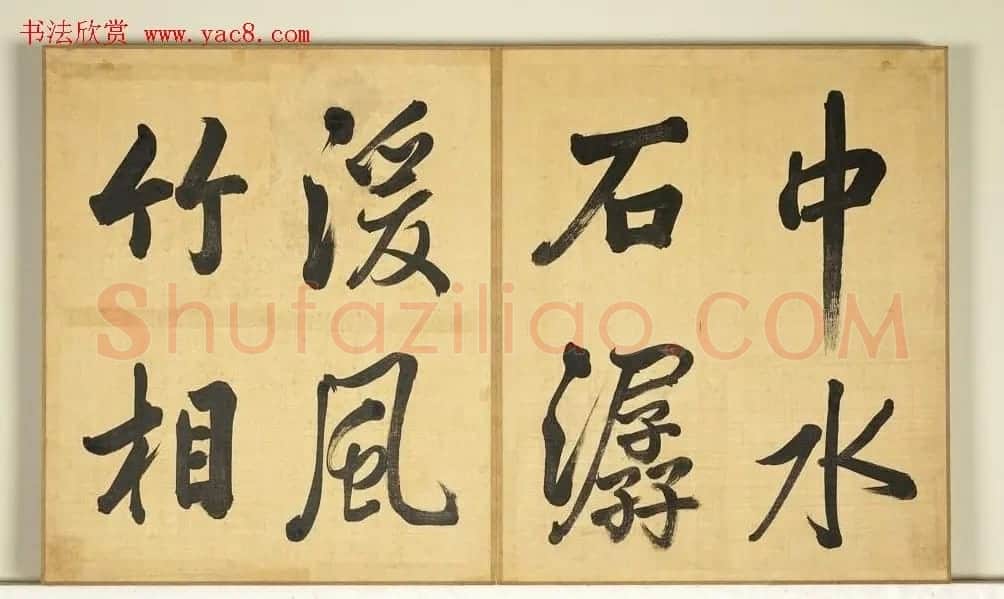 书法欣赏 www.yac8.com
中水
石潺
湲風
竹相
Shufaziliao.COM